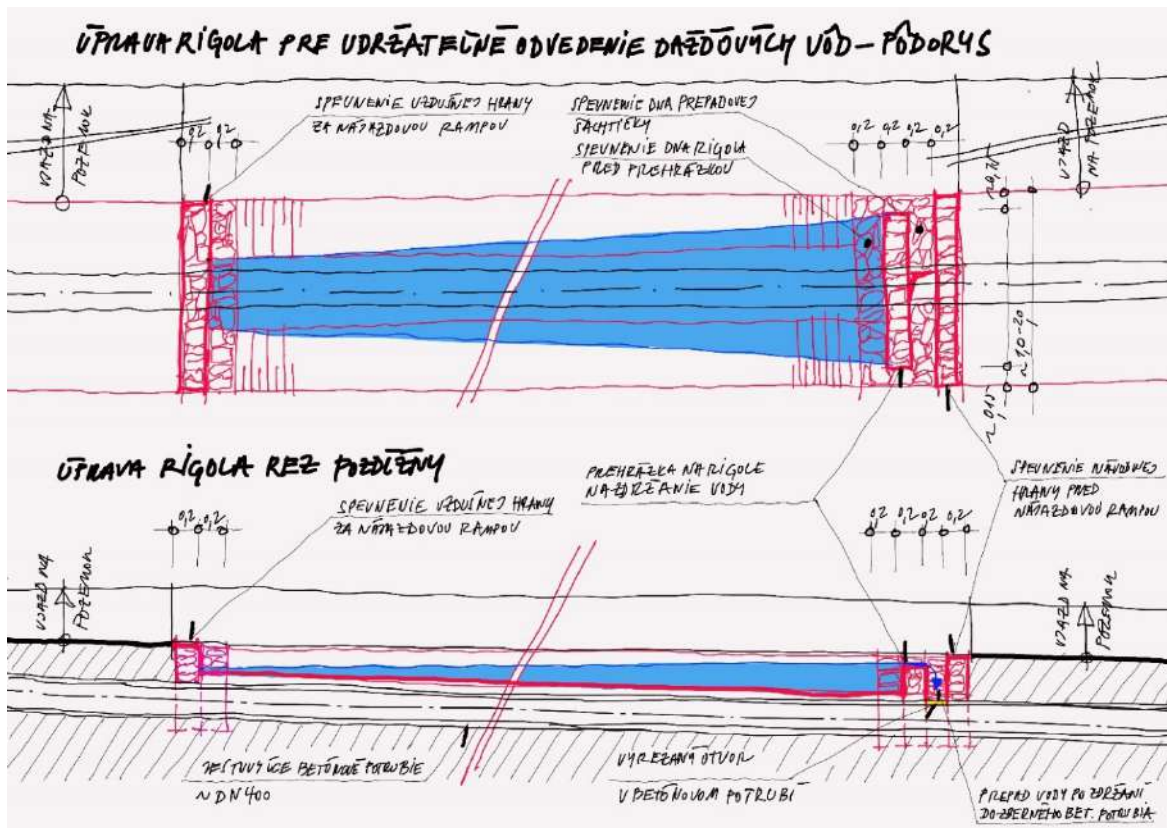 ÚPRAVA RIGOLA PRE UDRŽATEĽNÉ ODVEDENIE DAŽĎOVÝCH VÔD – PÔDORYS
VJAZD NA
POZEMOK
0,2 0,2
SPEVNENIE VZDUŠNEJ HRANY
ZA NÁJAZDOVOU RAMPOU
SPEVNENIE DNA PREPADOVEJ
ŠACHTIČKY
SPEVNENIE DNA RIGOLA
PRED PREHRÁZKOU
0,2 0,2 0,2 0,2
VJAZD
NA POZEMOK
~0,15
~1,0-20
ÚPRAVA RIGOLA REZ POZDĹŽNY
PREHRÁZKA NA RIGOLE
NA ZDRŽANIE VODY
SPEVNENIE NÁVODNEJ
HRANY PRED
NÁJAZDOVOU RAMPOU
SPEVNENIE VZDUŠNEJ HRANY
ZA NÁJAZDOVOU RAMPOU
0,2 0,2
0,2 0,2 0,2 0,2
VJAZD NA
POZEMOK
VJAZD NA
POZEMOK
JESTVUJÚCE BETÓNOVÉ POTRUBIE
~DN 400
VYREZANÝ OTVOR
V BETÓNOVOM POTRUBÍ
PREPAD VODY PO ZDRŽANÍ
DO ZBERNÉHO BET. POTRUBIA